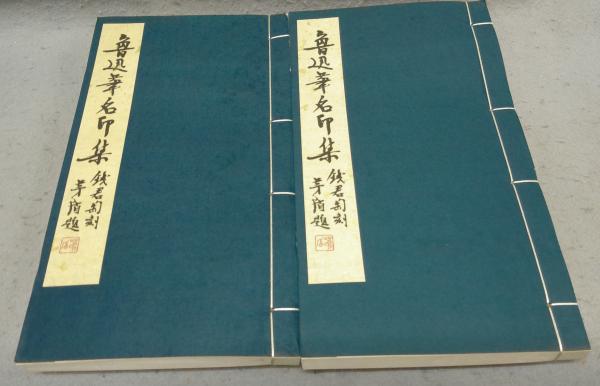 魯迅笔名印集
錢君匋刻
茅盾題
魯迅笔名印集
錢君匋刻
茅盾題